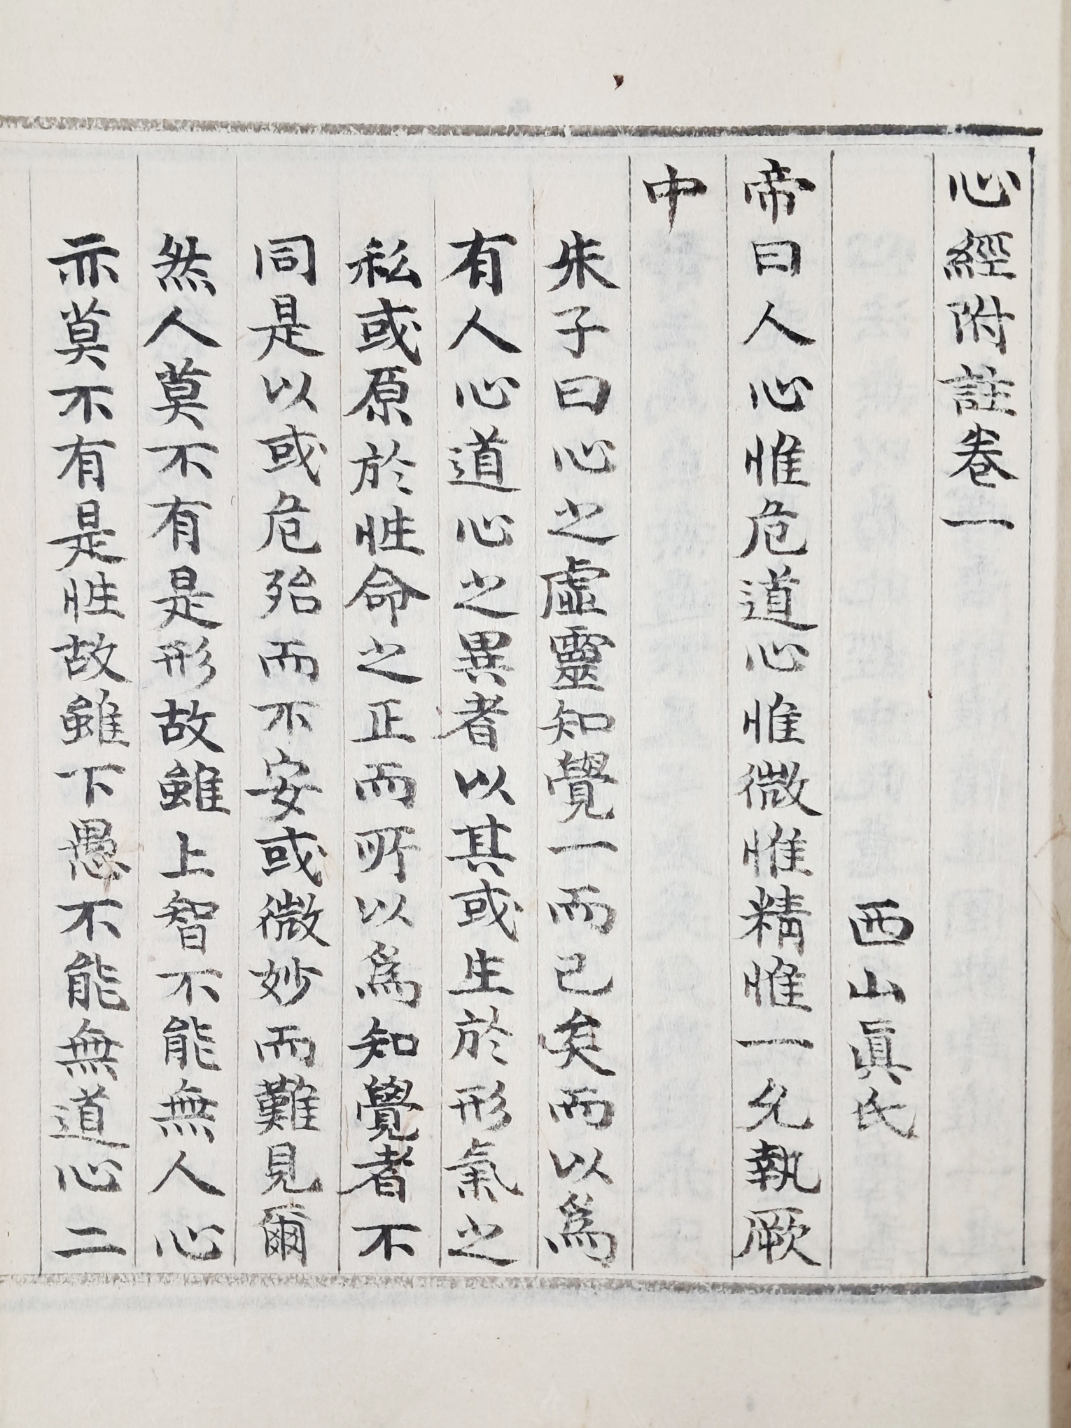 心經附註卷一
西山眞氏
帝曰人心惟危道心惟微惟精惟一允執厥
中
朱子曰心之虛靈知覺一而已矣而以爲
有人心道心之異者以其或生於形氣之
私或原於性命之正而所以爲知覺者不
同是以或危殆而不安或微妙而難見爾
然人莫不有是形故雖上智不能無人心
亦莫不有是性故雖下愚不能無道心二